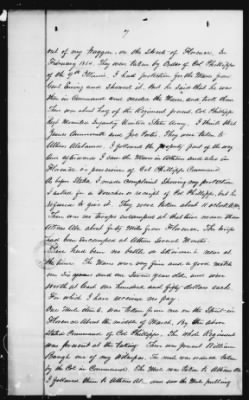 7
out of my waggon, on the street of Florence, in
February 1864. They were taken by Order of Col Phillipps
of the 9th Illinois. I had protection for the Mares from
Genl and showed it. But he said that he was
then in Command and needed the Mares and took them
There was about of the Regiment present, Col Phillipps
Regt Mounted Infantry United States Army. I think that
James and Joe were They were taken to
Athens Alabama. I followed the property part of the way
and afterwards I saw the Mares in Athens and also in
Florence in possession of Col Phillipps Command
at them I made complaint showing my protection
I asked for a Voucher or receipt of Col Phillipps, but he
refused to give it. They were taken about 11 o'clock A.M.
There was no troops encamped at that time nearer than
Athens Ala about forty miles from Florence. The troops
had been encamped at Athens several Months.
There had been no battle or skirmish near at
the time. The Mares was very fine and a good match
one Six years and one Seven years old, and was
worth at least one hundred and fifty dollars each.
For which I have received no pay.
One mule was taken from me on the Street in
Florence about the middle of March, by the above
states Command of Col Phillipps. The whole Regiment
was present at the taking. There was present William
one of my The mule was ordered taken
by the Col in Command. The Mule was taken to Athens Ala
I followed them to Athens Al and saw the Mule pulling